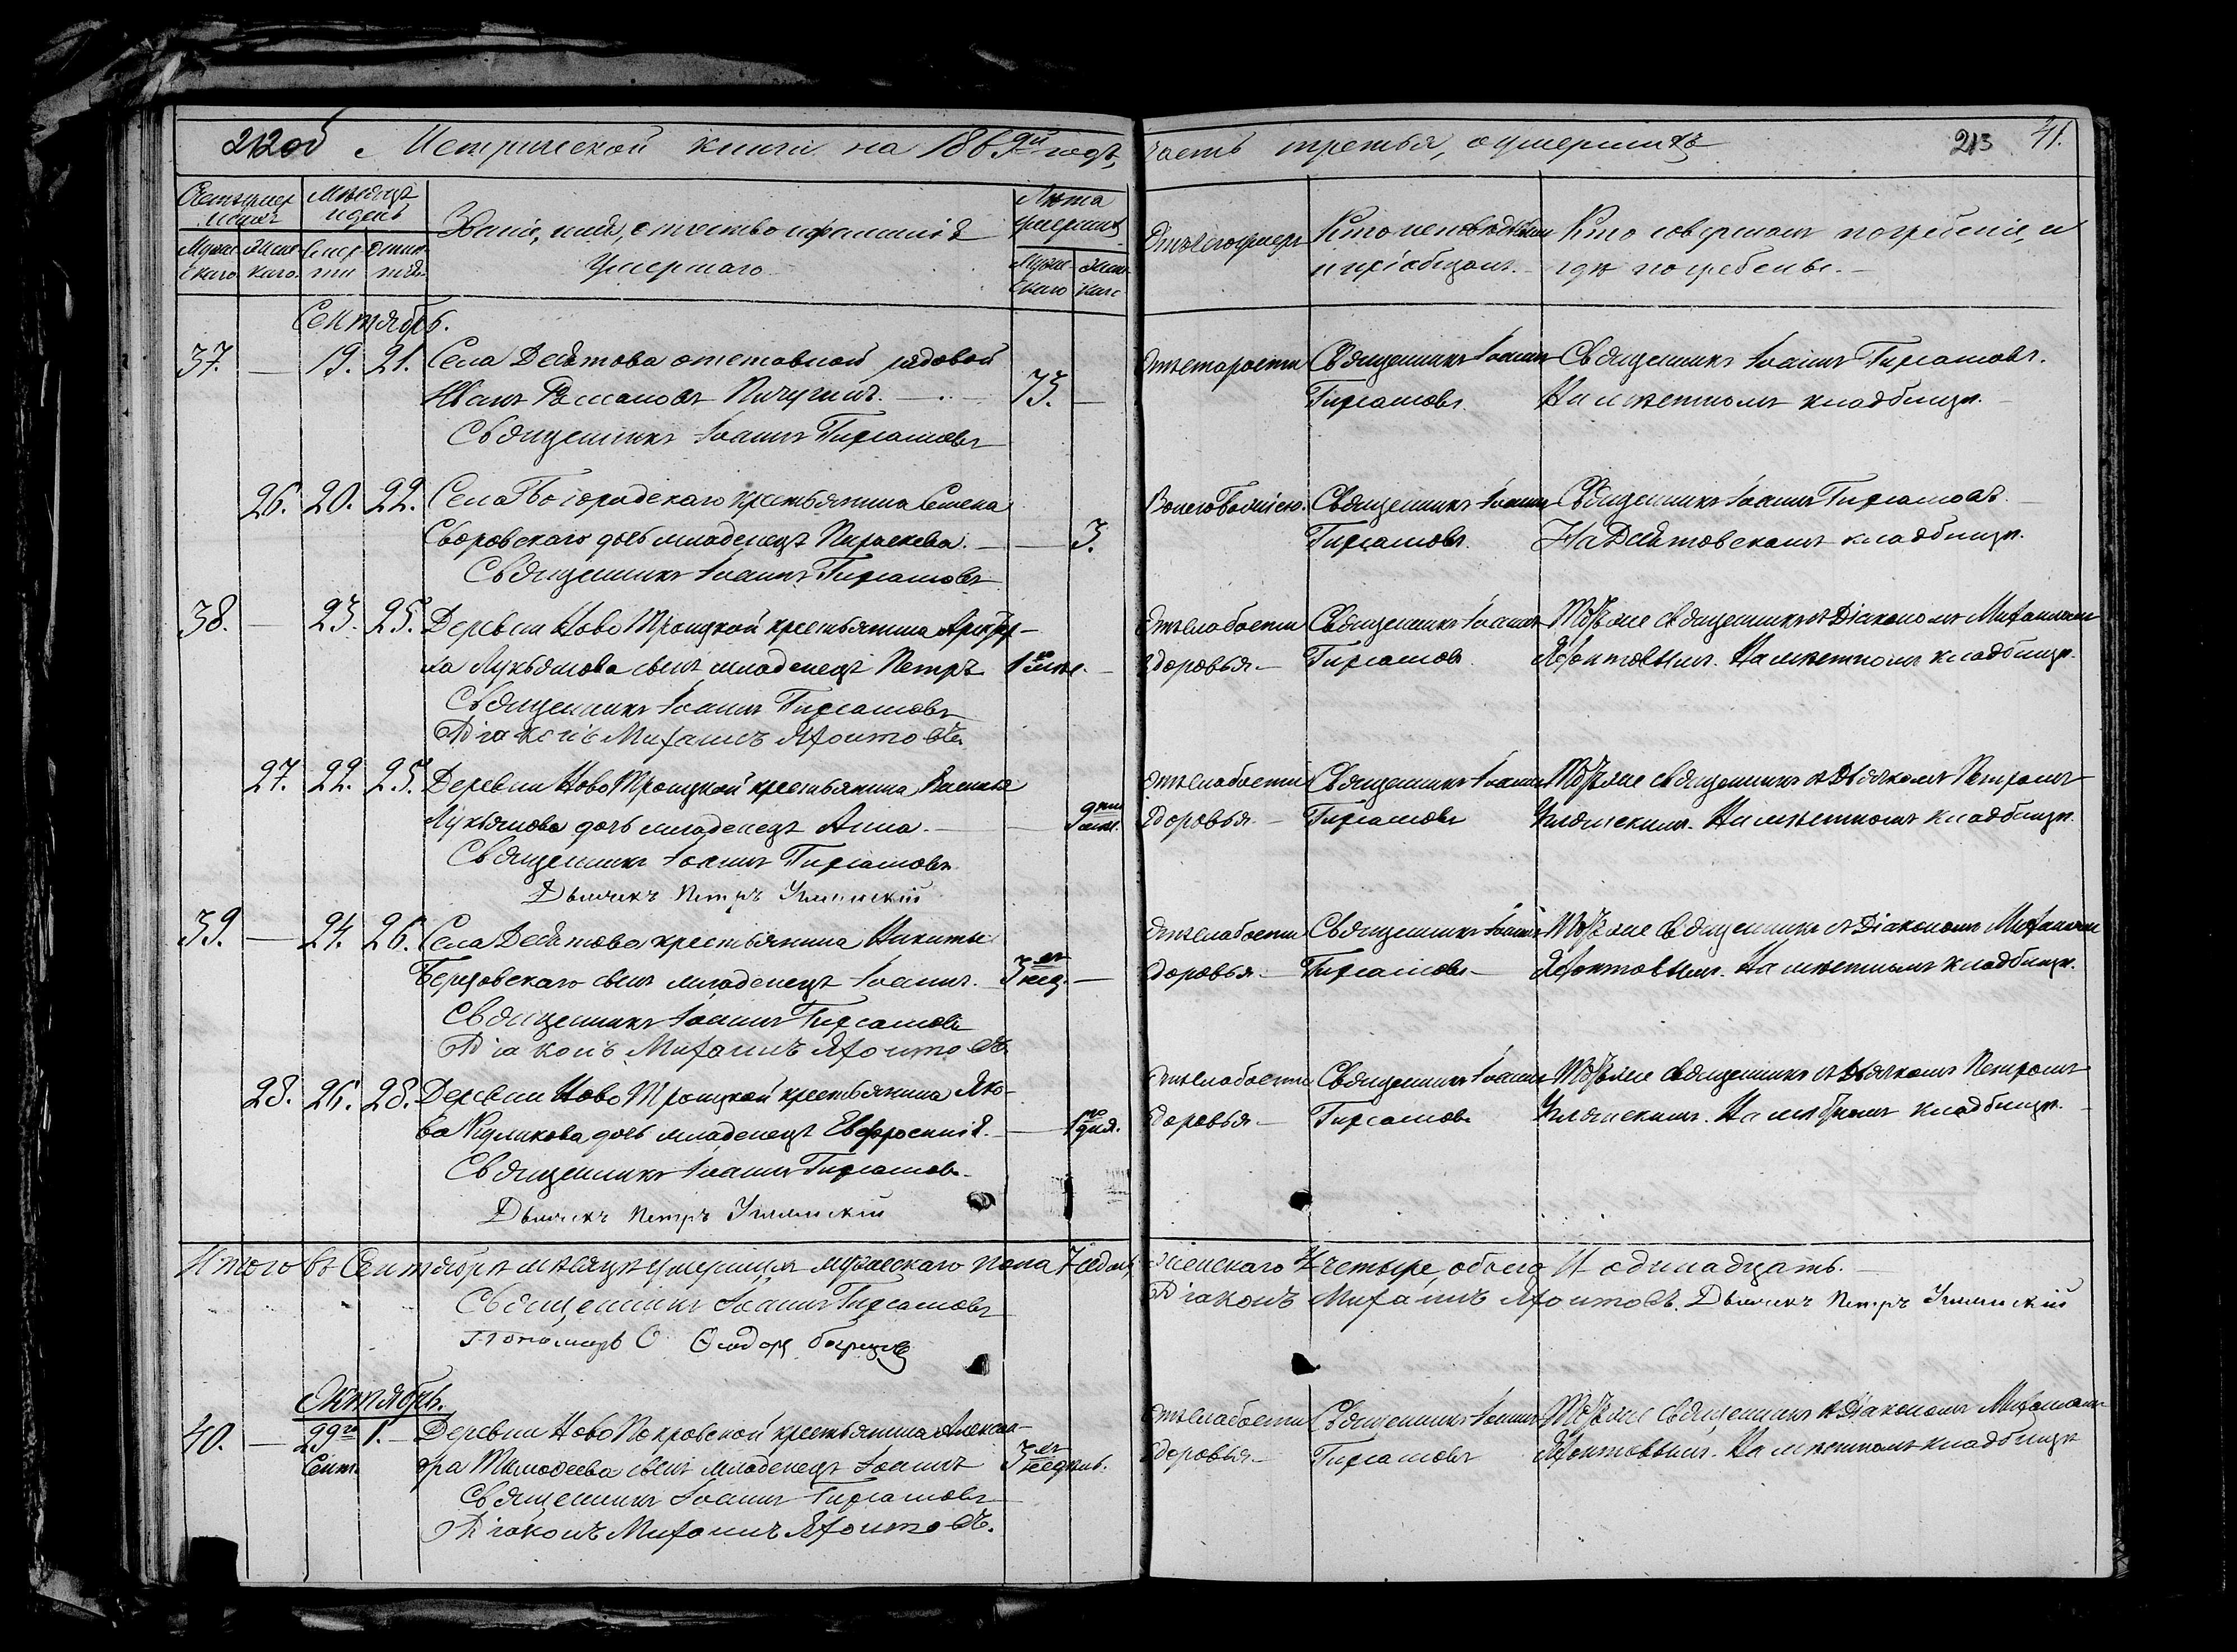 212об Метрической книги на 1869й годъ,
часть третья, о умершихъ
213 41.
Счетъ умершихъ
Мужескаго
Женскаго
Мѣсяцъ и день
Смерти
Погребенія
Званіе, имя, отчество и фамилія
Умершаго.
Лѣта умершихъ
Мужескаго
Женскаго
Отъ чего умеръ
Кто исповѣдывалъ
и пріобщалъ.
Кто совершалъ погребеніе, и
гдѣ погребены.
Сентябрь.
37. — 19. 21. Села Десятова отставной рядовой
Иванъ Романовъ Пичугинъ. — 73. —
Священникъ Іоаннъ Гирсамовъ
Отъ старости Священникъ Іоаннъ Священникъ Іоаннъ Гирсамовъ.
Гирсамовъ. На мѣстномъ кладбищѣ.
26. 20. 22. Села Богородскаго крестьянина Семена
Сборовскаго дочь младенецъ Параскева. — — 3.
Священникъ Іоаннъ Гирсамовъ
Воспою. Священникъ Іоаннъ Священникъ Іоаннъ Гирсамовъ.
Гирсамовъ. На Десятовскомъ кладбищѣ.
38. — 23. 25. Деревни Ново Троицкой крестьянина
Лукьянова сынъ младенецъ Петръ 1 мѣс. —
Священникъ Іоаннъ Гирсамовъ
Діаконъ Михаилъ Яхонтовъ
Отъ слабости Священникъ Іоаннъ Тотъ же священникъ съ Діакономъ Михаиломъ
здоровья. — Гирсамовъ. Яхонтовымъ. На мѣстномъ кладбищѣ.
27. 22. 25. Деревни Ново Троицкой крестьянина Василья
Лукьянова дочь младенецъ Анна. — — 9 мѣс.
Священникъ Іоаннъ Гирсамовъ
Дьячекъ Петръ
Отъ слабости Священникъ Іоаннъ Тотъ же священникъ съ Дьячкомъ Петромъ
здоровья. — Гирсамовъ На мѣстномъ кладбищѣ.
39. — 24. 26. Села Десятова крестьянина Никиты
Березовскаго сынъ младенецъ Іоаннъ. 3 нед. —
Священникъ Іоаннъ Гирсамовъ
Діаконъ Михаилъ Яхонтовъ.
Отъ слабости Священникъ Іоаннъ Тотъ же священникъ съ Діакономъ Михаиломъ
здоровья. — Гирсамовъ — Яхонтовымъ. На мѣстномъ кладбищѣ.
28. 26. 28. Деревни Ново Троицкой крестьянина Яко-
ва Куликова дочь младенецъ Евфросинія. — — 1 дня.
Священникъ Іоаннъ Гирсамовъ
Дьячекъ Петръ
Отъ слабости Священникъ Іоаннъ Тотъ же священникъ съ Дьячкомъ Петромъ
здоровья — Гирсамовъ На мѣстномъ кладбищѣ.
Итого въ Сентябрѣ мѣсяцѣ умершихъ мужескаго пола 7 седмь,
женскаго 4 четыре, обоего 11 одинадцать.
Священникъ Іоаннъ Гирсамовъ
Діаконъ Михаилъ Яхонтовъ. Дьячекъ Петръ
Пономарь Ѳеодоръ
Октябрь.
40. — 29го 1. — Деревни Ново Покровской крестьянина Алексан-
Сент. дра Тимоѳеева сынъ младенецъ Іоаннъ 3 недѣль.
Священникъ Іоаннъ Гирсамовъ
Діаконъ Михаилъ Яхонтовъ.
Отъ слабости Священникъ Іоаннъ Тотъ же священникъ съ Діакономъ Михаиломъ
здоровья — Гирсамовъ Яхонтовымъ. На мѣстномъ кладбищѣ